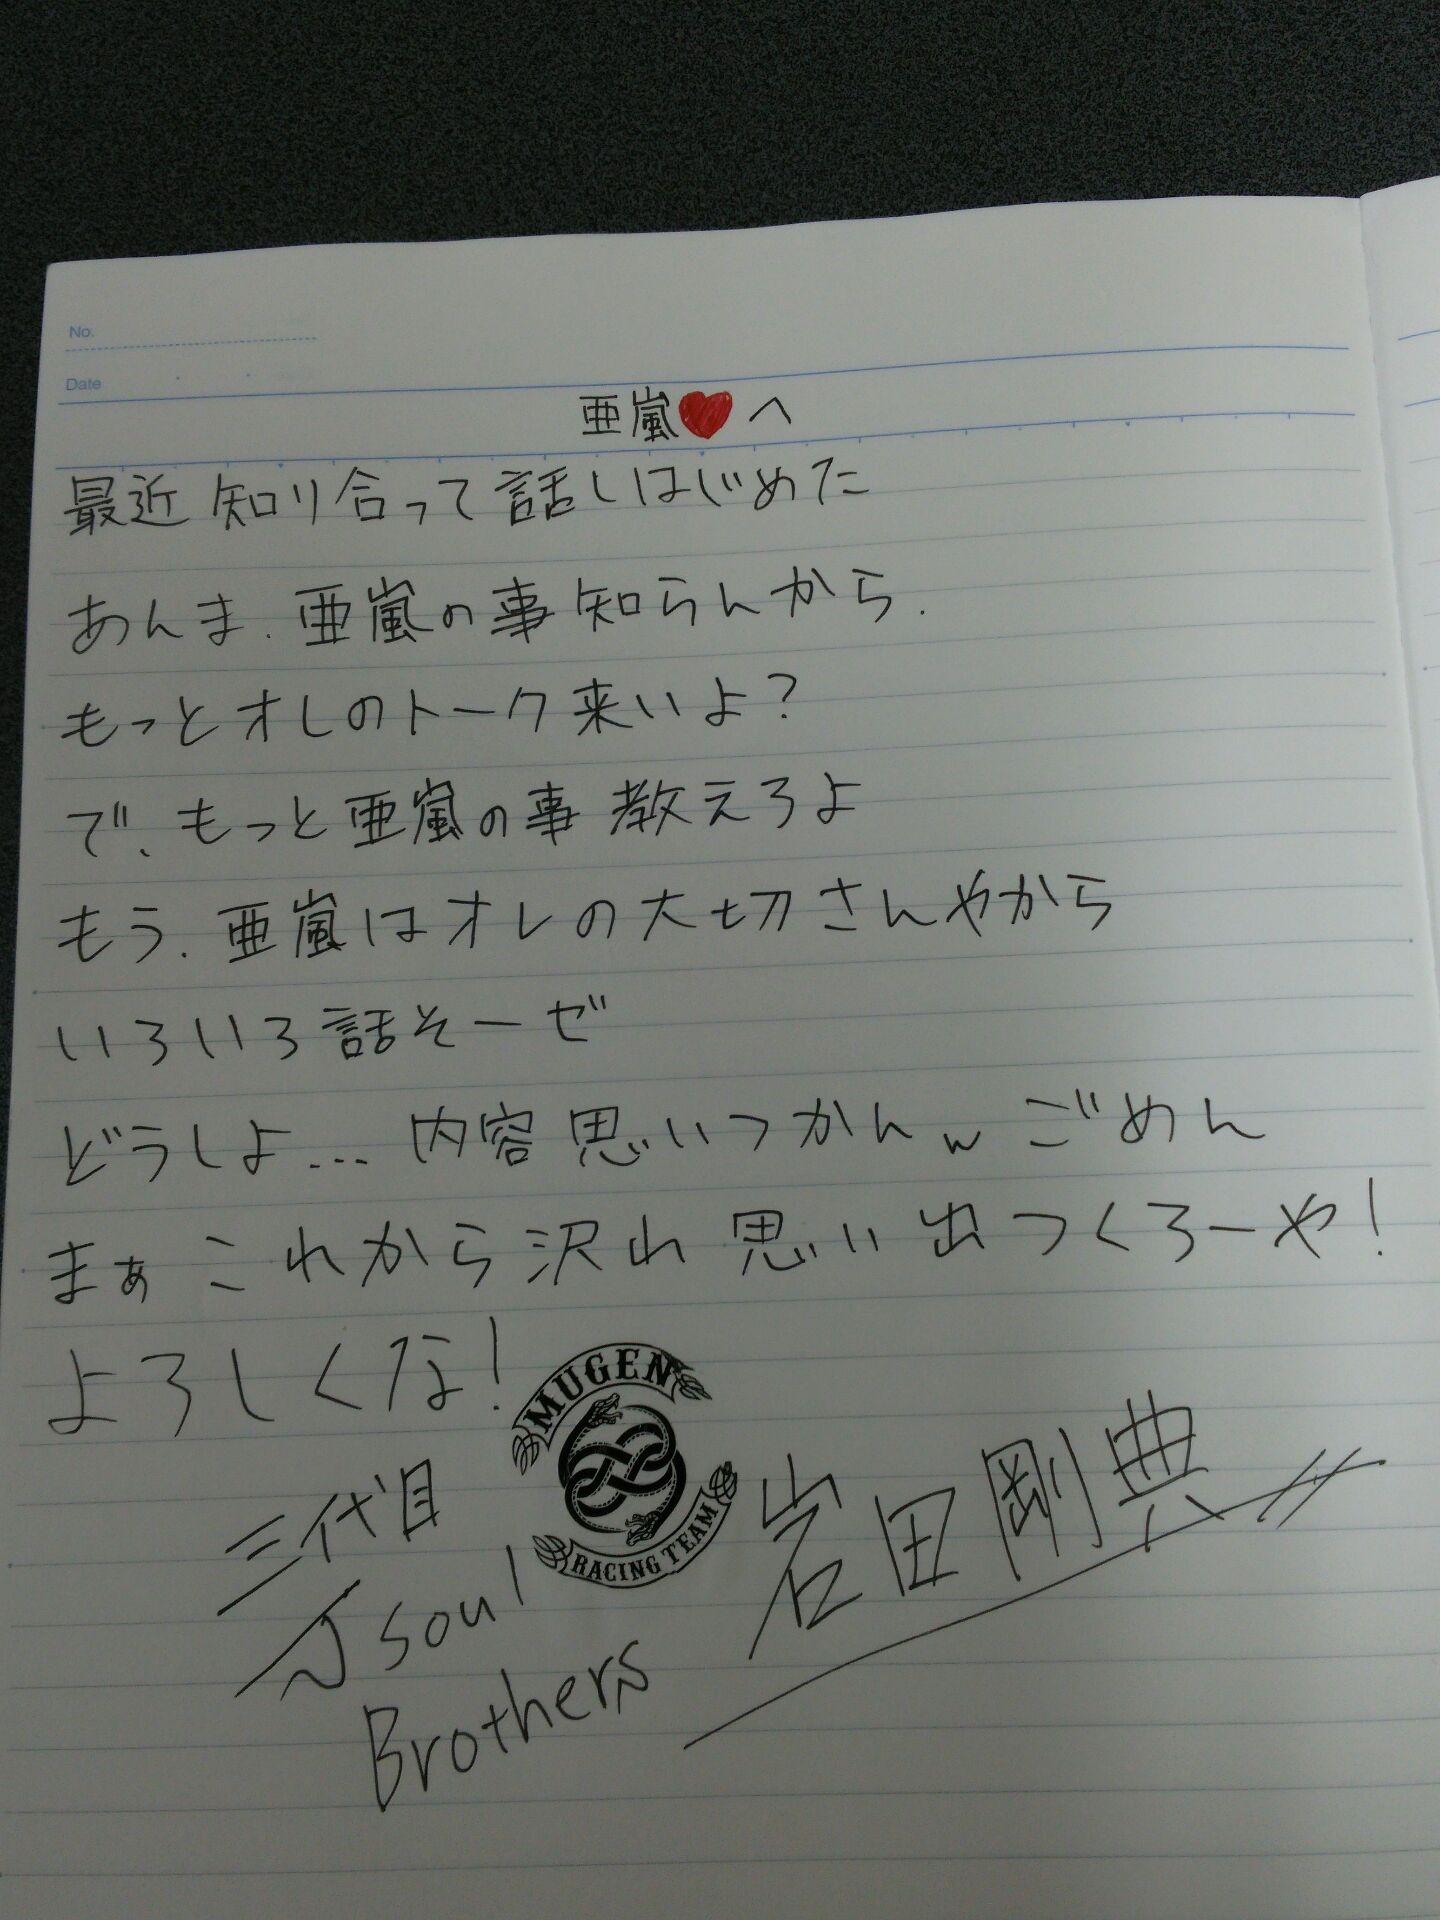 No.
Date
亜嵐❤へ
最近知り合って話しはじめた
あんま.亜嵐の事知らんから.
もっとオレのトーク来いよ?
で、もっと亜嵐の事教えろよ
もう.亜嵐はオレの大切さんやから
いろいろ話そーぜ
どうしよ...内容思いつかんw ごめん
まぁこれから沢山思い出つくろーや!
よろしくな!
MUGEN
RACING TEAM
三代目
J soul
Brothers
岩田剛典